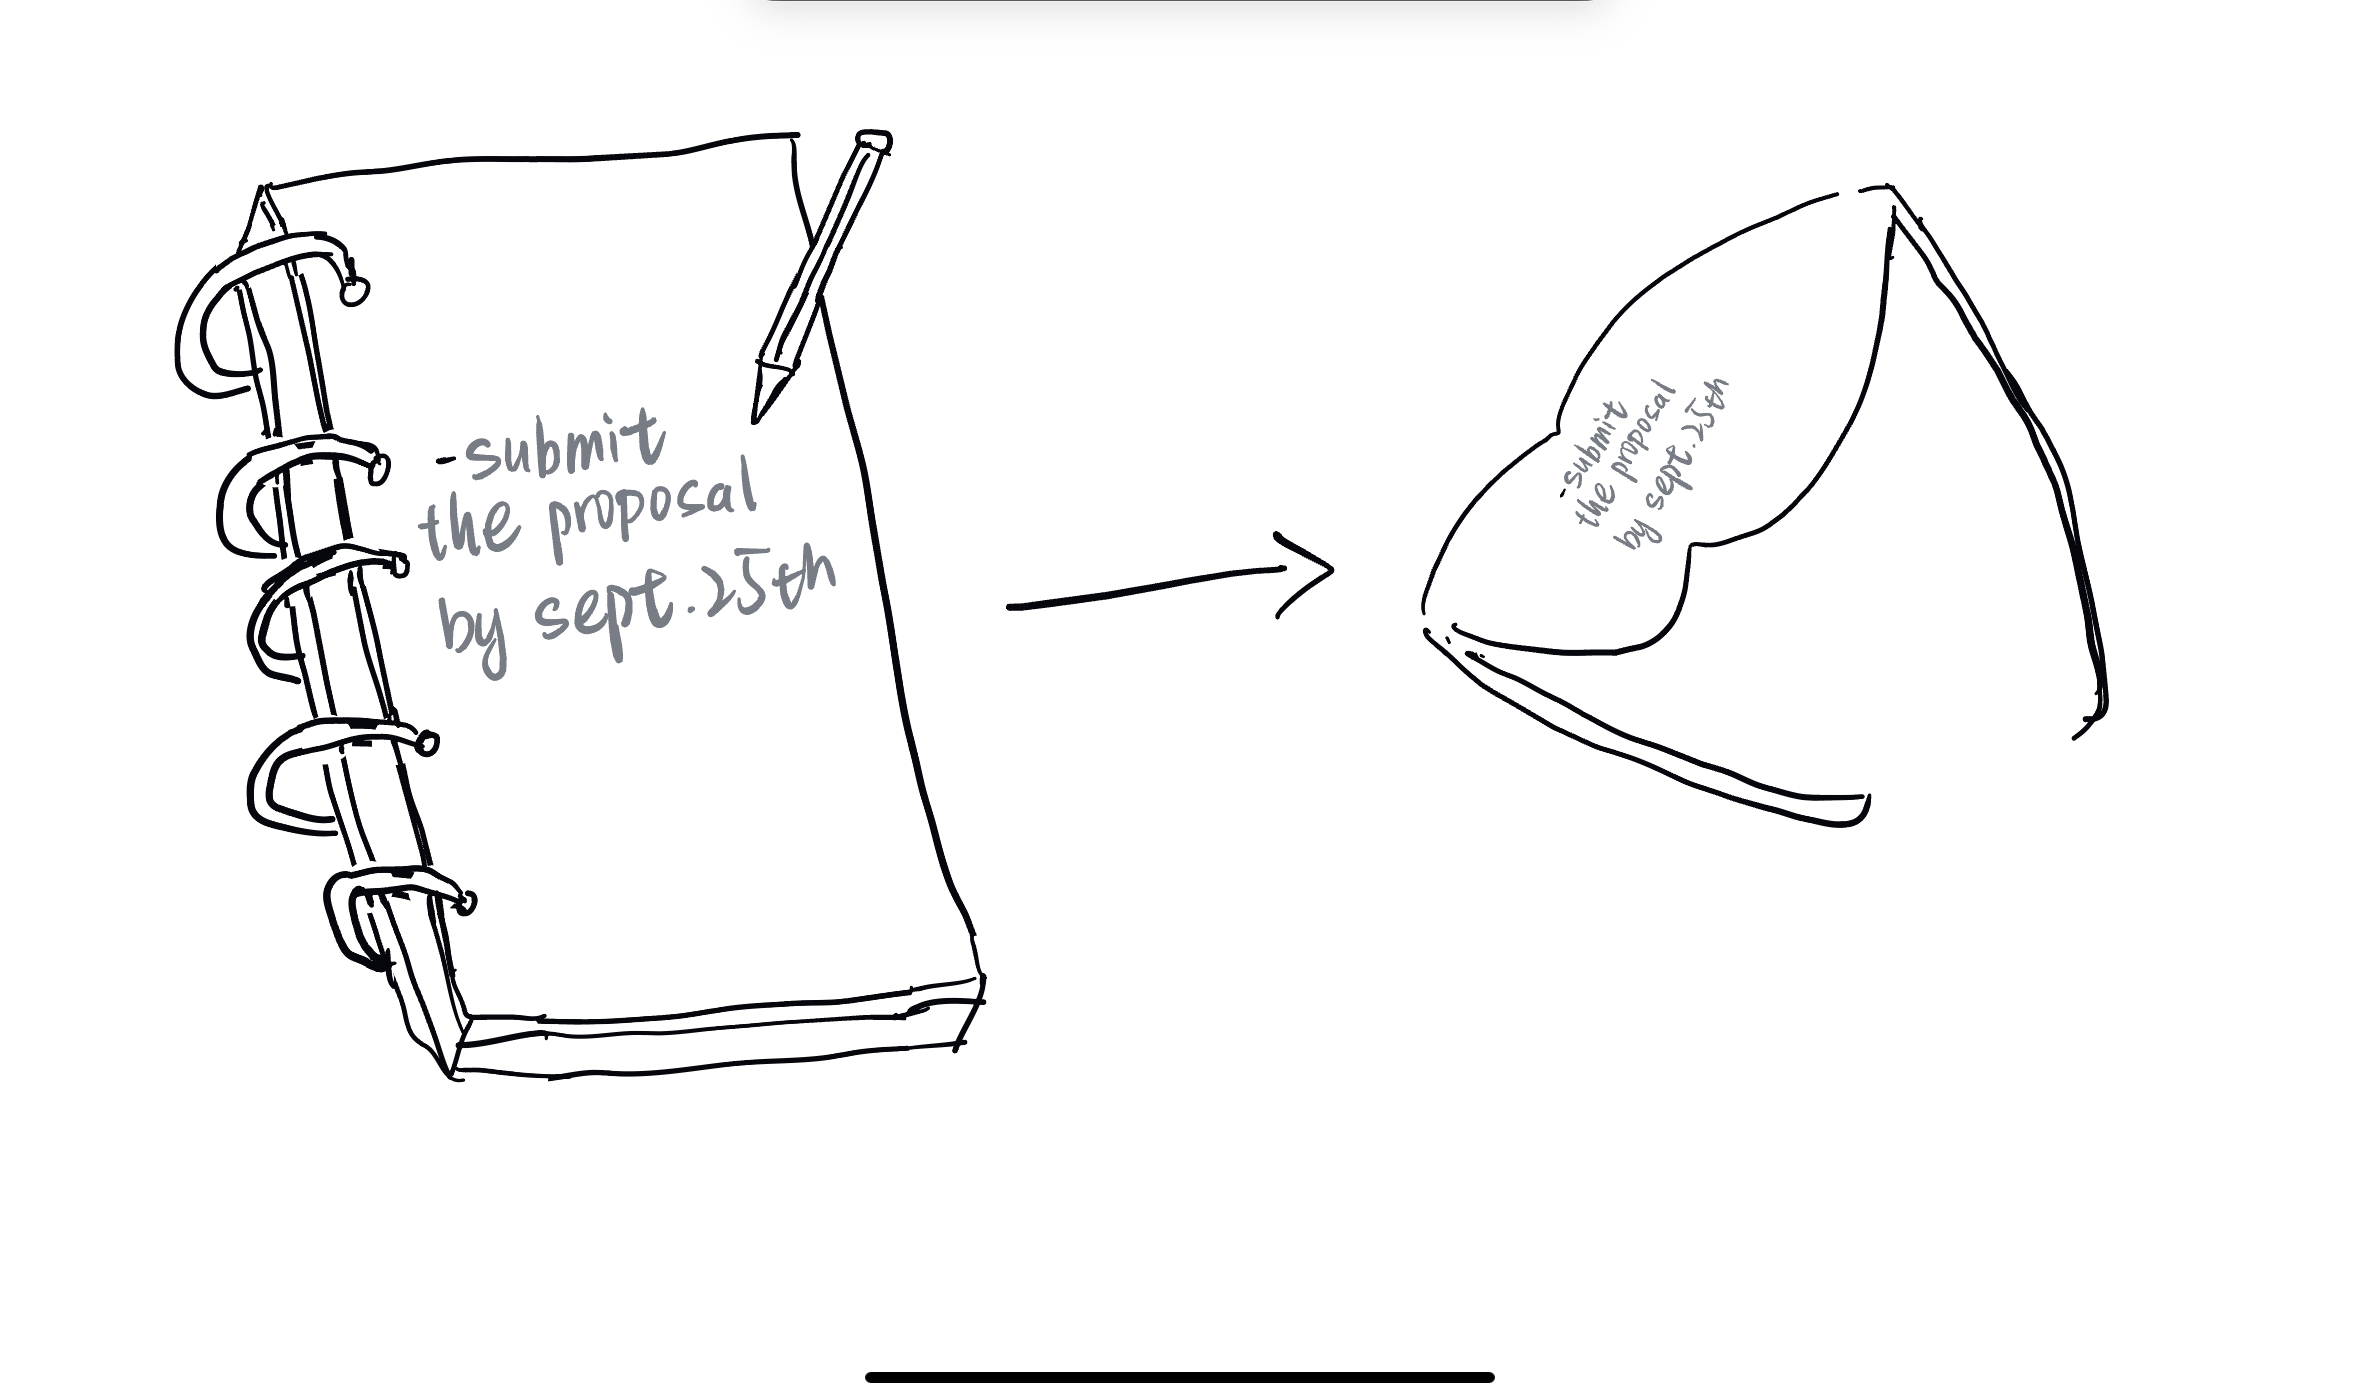 -submit
the proposal
by sept.25th
-submit
the proposal
by sept.25th